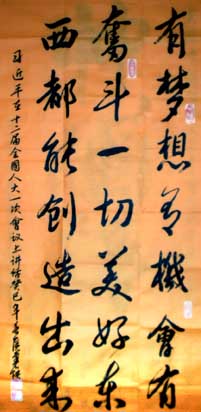 有梦想有機會有
奮斗一切美好东
西都能创造出来
习近平在十二届全國人大一次會议上讲话癸巳年